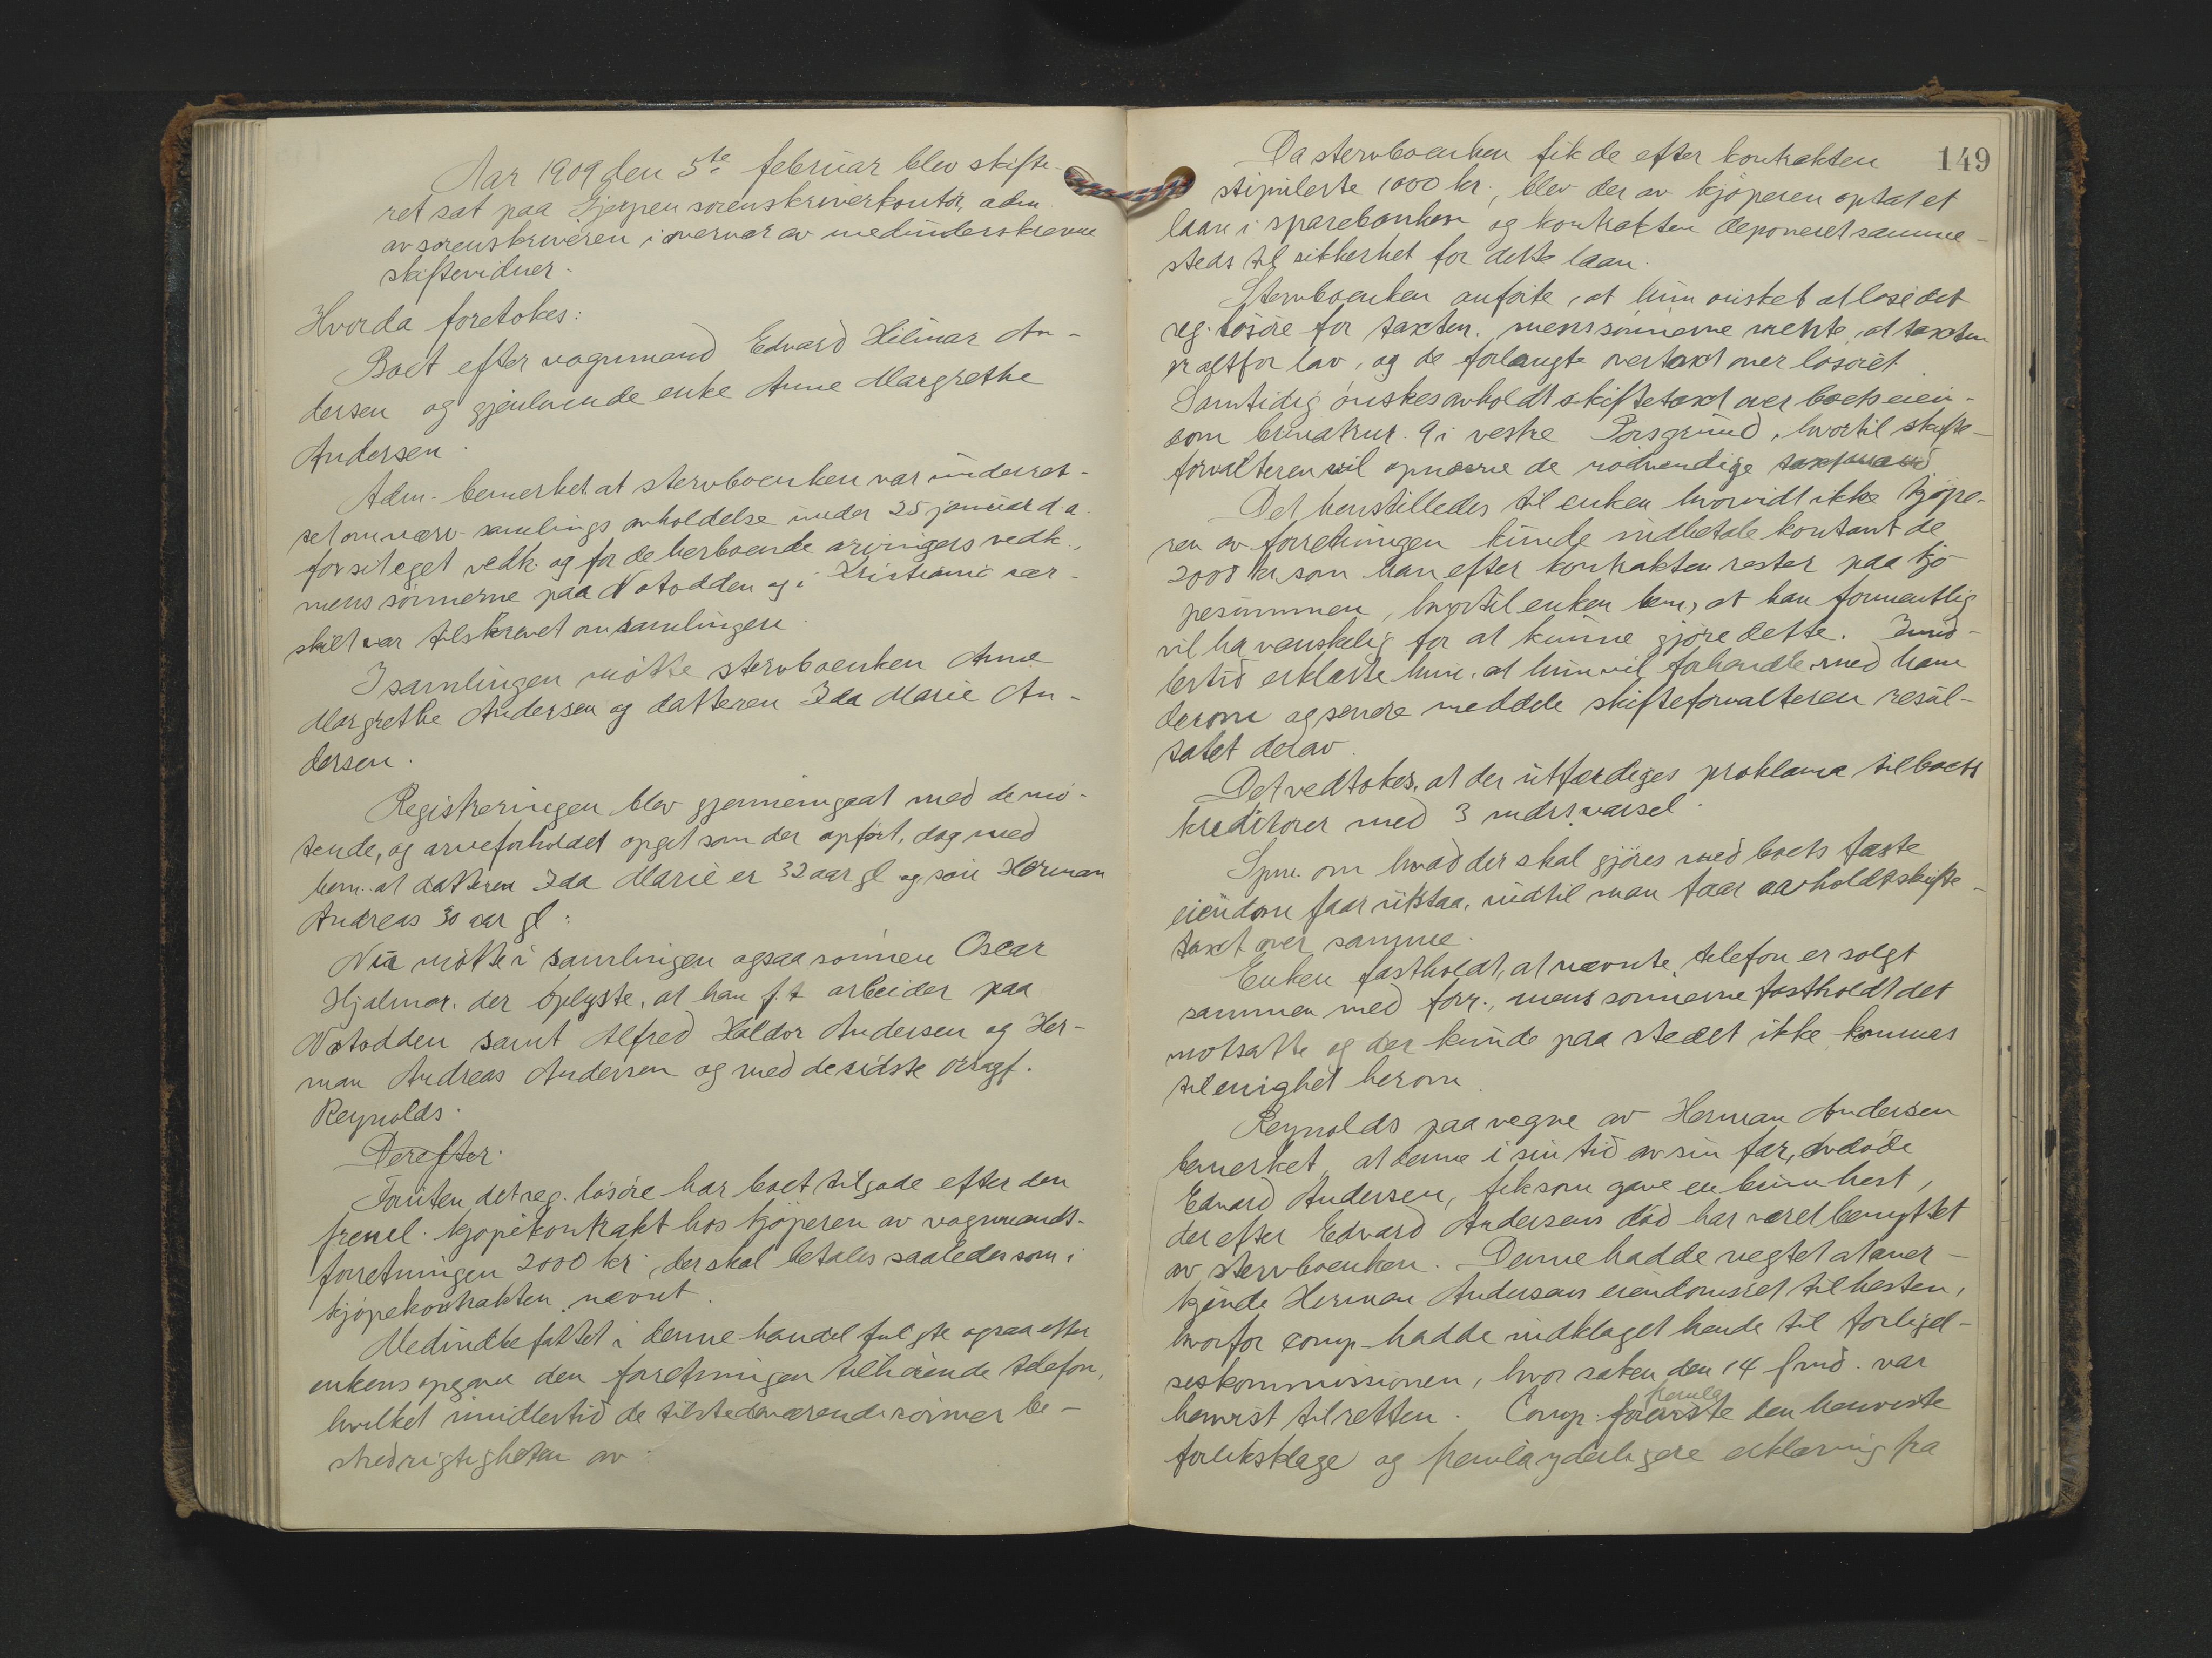 Aar 1909 den 5te februar blev skifte-
ret sat paa Gjerpen sorenskriverkontor, adm.
av sorenskriveren i overvær av medunderskrevne
skiftevidner.
Hvorda foretokes:
Boet efter vognmand Edvard Hilmar An-
dersen og gjenlevende enke Anne Margrethe
Andersen.
Adm. bemerket at stervboenken var underret-
tet om nærv. samlings avholdelse under 25 januar d.a.
for sit eget vedk. og for de herboende arvingers vedk.,
mens sönnerne paa Notodden og i Kristiania sær-
skilt var tilskrevet om samlingen.
I samlingen mötte stervboenken Anne
Margrethe Andersen og datteren Ida Marie An-
dersen.
Registreringen blev gjennemgaat med de mö-
tende, og arveforholdet opgit som der opfört, dog med
bem. at datteren Ida Marie er 32 aar gl og sön Herman
Andreas 30 aar gl:
Nu mötte i samlingen ogsaa sönnen Oscar
Hjalmar. der oplyste, at han f.t. arbeider paa
Notodden samt Alfred Haldor Andersen og Her-
man Andreas Andersen og med de sidste orsagf.
Reynolds.
Derefter.
Foruten det reg. lösöre har boet tilgode efter den
freml. kjöpekontrakt hos kjöperen av vognmands-
forretningen 2000 kr, der skal betales saaledes som i
kjöpekontrakten nævnt.
Medindbefattet i denne handel fulgte ogsaa efter
enkens opgave den forretningen tilhörende telefon,
hvilket imidlertid de tilstedeværende sönner be-
stred rigtigheten av.
149
Da stervboenken fik de efter kontrakten
stipulerte 1000 kr., blev der av kjöperen optat et
laan i sparebanken og kontrakten deponeret samme-
steds til sikkerhet for dette laan.
Stervboenken anförte, at hun önsket at löse det
reg. lösöre for taxten. mens sönnerne mente, at taxten
er altfor lav, og de forlangte overtaxt over lösöret.
Samtidig önskes avholdt skiftetaxt over boets eien-
dom brmatrnr. 9 i vestre Porsgrund, hvortil skifte-
forvalteren vil opnævne de nödvendige taxtmænd.
Det henstilledes til enken hvorvidt ikke kjöpe-
ren av forretningen kunde indbetale kontant de
2000 kr, som han efter kontrakten rester paa kjö-
pesummen, hvortil enken bem, at han formentlig
vil ha vanskelig for at kunne gjöre dette. Imid-
lertid erklærte hun, at hun vil forhandle med ham
derom og senere meddele skifteforvalteren resul-
tatet derav.
Det vedtokes, at der utfærdiges proklama til boets
kreditorer med 3 mdrs. varsel.
Spm. om hvad der skal gjöres med boets faste
eiendom faar utstaa, indtil man faar avholdt skifte-
taxt over samme.
Enken fastholdt, at nævnte telefon er solgt
sammen med forr., mens sönnerne fastholdt det
motsatte og der kunde paa stedet ikke kommes
til enighet herom.
Reynolds paa vegne av Herman Andersen
bemerket, at denne i sin tid av sin far, avdöde
Edvard Andersen, fik som gave en brun hest,
der efter Edvard Andersens död har været benyttet
av stervboenken. Denne hadde negtet at aner-
kjende Herman Andersens eiendomsret til hesten,
hvorfor comp. hadde indklaget hende til forligel-
seskommissionen, hvor saken den 14 f md. var
henvist til retten. Comp. fremla den henviste
forliksklage og fremla yderligere erklæring fra